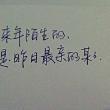 来年陌生的,
是昨日最亲的某某